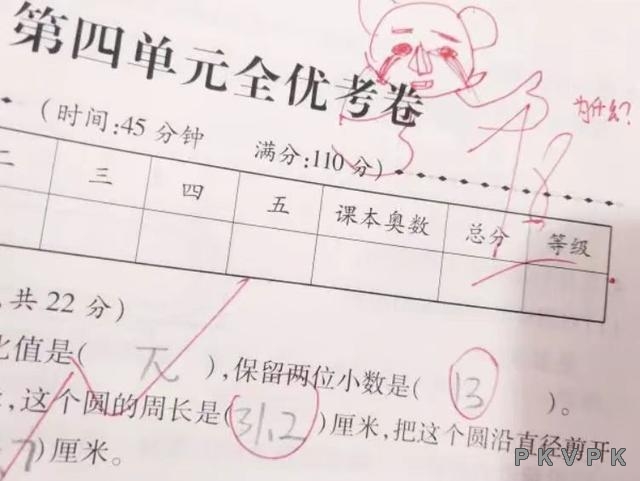 第四单元全优考卷
(时间:45 分钟 满分:110 分)
为什么?
48
二 三 四 五 课本奥数 总分 等级
,共 22 分)
比值是( 兀 ),保留两位小数是( 13 )。
,这个圆的周长是( 31.2 )厘米,把这个圆沿直径剪开
7 )厘米。
PKVPK